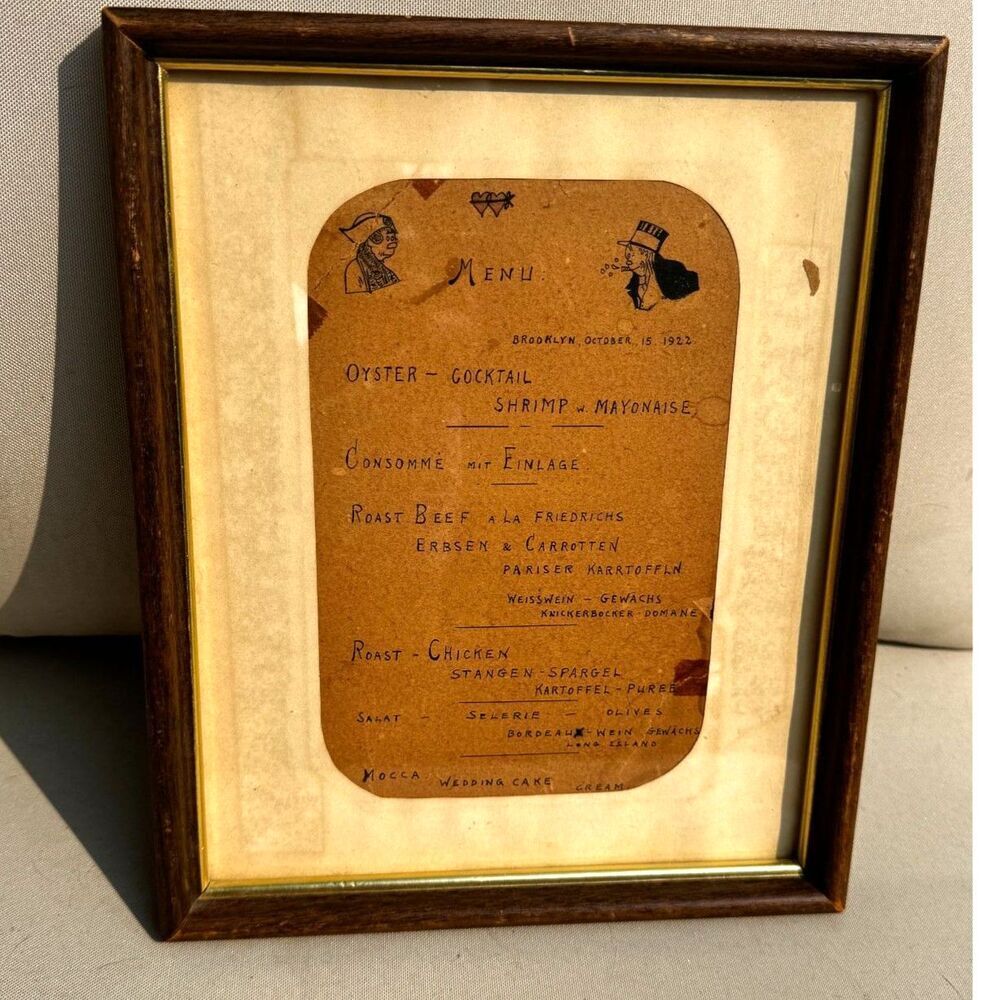 MENU:
BROOKLYN, OCTOBER 15. 1922
OYSTER - COCKTAIL
SHRIMP w. MAYONAISE
CONSOMMÉ MIT EINLAGE.
ROAST BEEF A LA FRIEDRICHS
ERBSEN & CARROTTEN
PARISER KARRTOFFLN
WEISSWEIN - GEWÄCHS
KNICKERBOCKER-DOMANE
ROAST - CHICKEN
STANGEN-SPARGEL
KARTOFFEL-PUREE
SALAT - SELERIE - OLIVES
BORDEAUX-WEIN GEWÄCHS
LONG ISLAND
MOCCA WEDDING CAKE CREAM